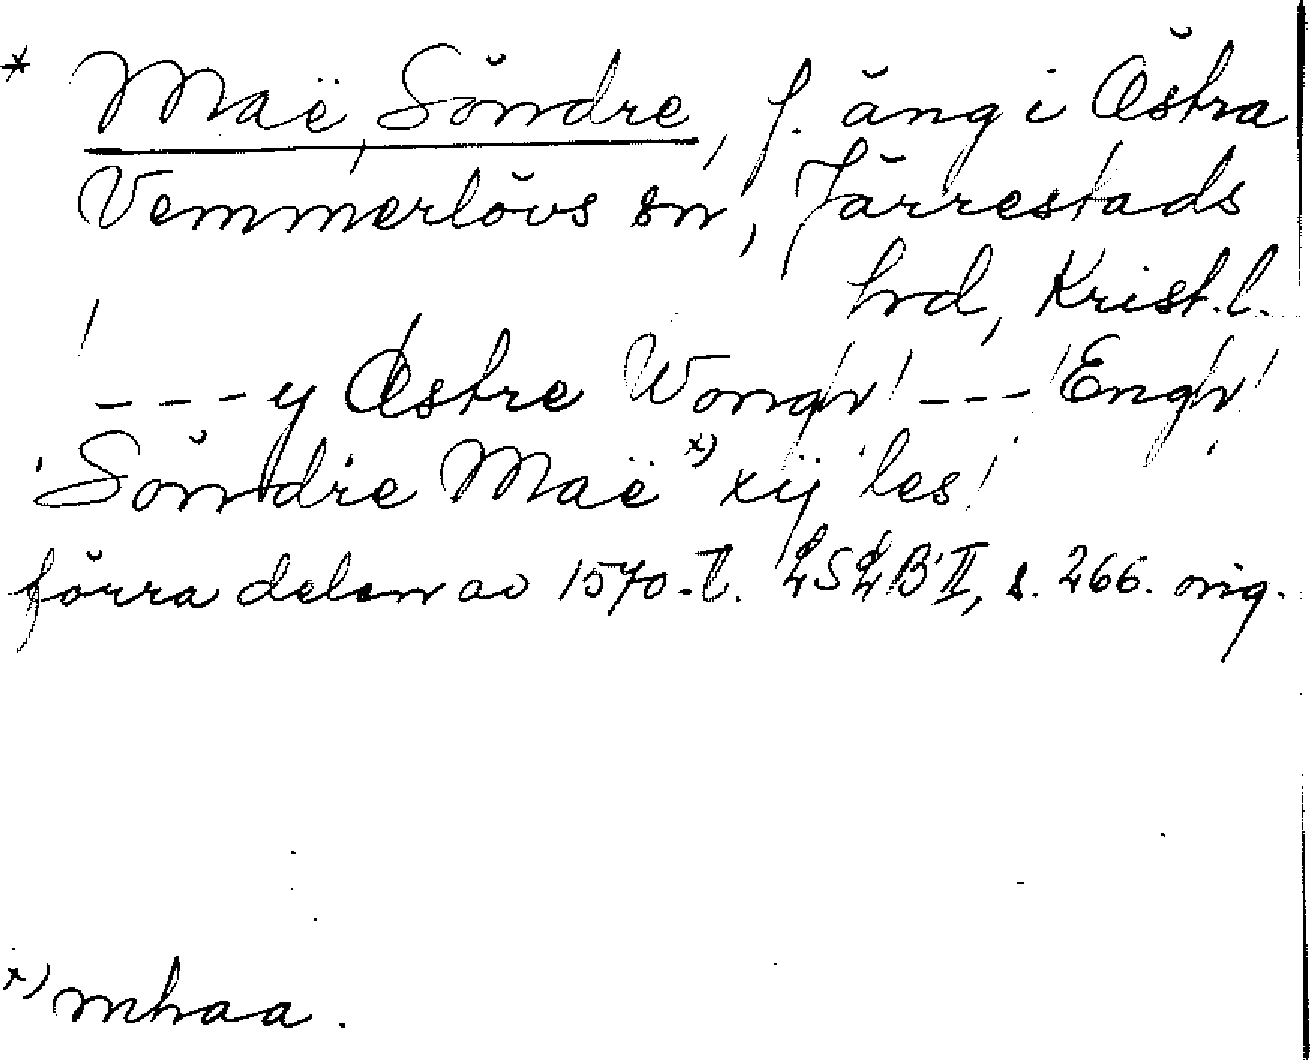 * Maë, Söndre, f. äng i Östra
Vemmerlövs sn, Järrestads
hrd, Krist.l.
- - - y Østre Wongh - - - Engh
Söndre Maë x) xij les
förra delen av 1570-t. LSLB II, s. 266. orig.
x) mhaa.